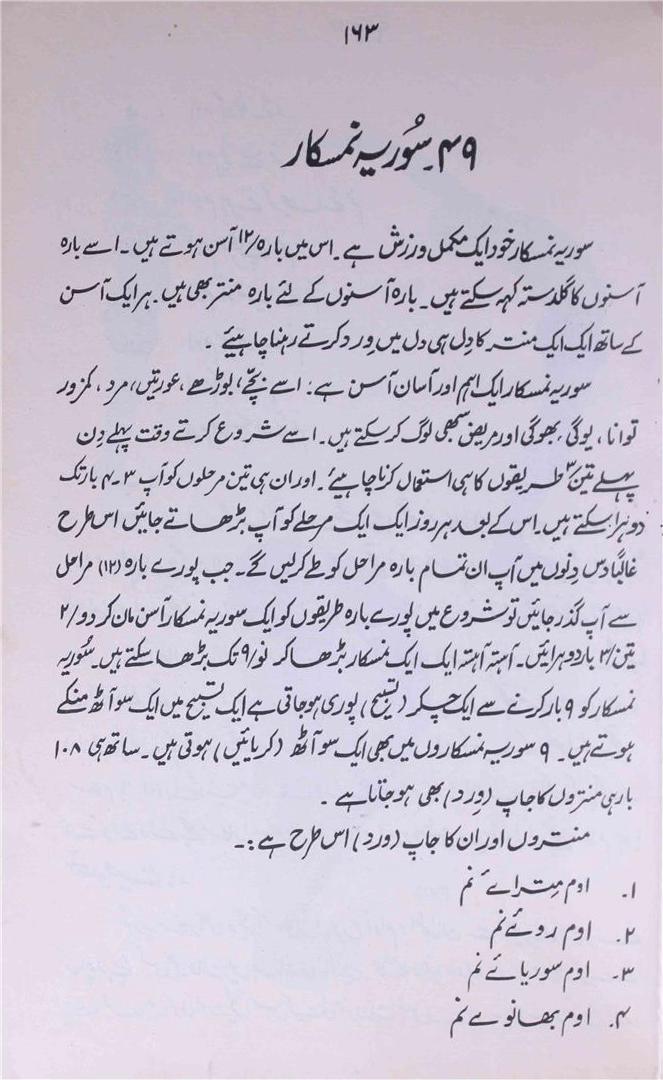 ۱۶۳
۴۹۔ سُوریہ نمسکار
سوریہ نمسکار خود ایک مکمل ورزش ہے۔ اس میں بارہ/۱۲ آسن ہوتے ہیں۔ اسے بارہ
آسنوں کا گلدستہ کہہ سکتے ہیں۔ بارہ آسنوں کے لئے بارہ منتر بھی ہیں۔ ہر ایک آسن
کے ساتھ ایک ایک منتر کا دِل ہی دل میں وِرد کرتے رہنا چاہیئے۔
سوریہ نمسکار ایک اہم اور آسان آسن ہے۔ اسے بچّے، بوڑھے، عورتیں، مرد، کمزور
توانا، یوگی، بھوگی اور مریض سبھی لوگ کر سکتے ہیں۔ اسے شروع کرتے وقت پہلے دِن
پہلے تین۳ طریقوں کا ہی استعمال کرنا چاہیئے۔ اور ان ہی تین مرحلوں کو آپ ۳۔۴ بار تک
دوہرا سکتے ہیں۔ اس کے بعد ہر روز ایک ایک مرحلے کو آپ بڑھاتے جائیں اس طرح
غالباً دس دِنوں میں آپ ان تمام بارہ مراحل کو طے کرلیں گے۔ جب پورے بارہ (۱۲) مراحل
سے آپ گذر جائیں تو شروع میں پورے بارہ طریقوں کو ایک سوریہ نمسکار آسن مان کر دو/۲
تین/۳ بار دوہرائیں۔ آہستہ آہستہ ایک ایک نمسکار بڑھا کر نو/۹ تک بڑھا سکتے ہیں۔ سُوریہ
نمسکار کو ۹ بار کرنے سے ایک چکر (تسبیح) پوری ہو جاتی ہے ایک تسبیح میں ایک سو آٹھ منکے
ہوتے ہیں۔ ۹ سوریہ نمسکاروں میں بھی ایک سو آٹھ (کریائیں) ہوتی ہیں۔ ساتھ ہی ۱۰۸
بار ہی منتروں کا جاپ (وِرد) بھی ہو جاتا ہے۔
منتروں اور ان کا جاپ (ورد) اس طرح ہے:۔
۱۔ اوم مِترائے نم
۲۔ اوم روئے نم
۳۔ اوم سوریائے نم
۴۔ اوم بھانوے نم